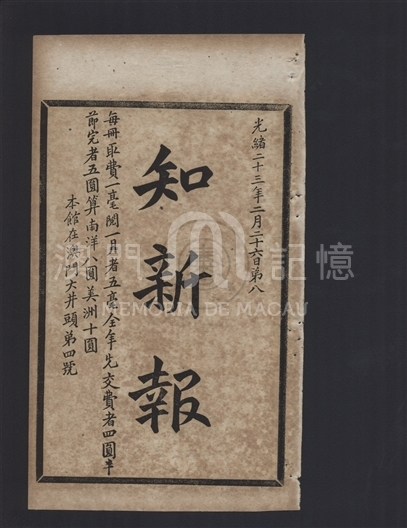 光緒二十三年二月二十六日第八
知新報
每冊取費一毫閱一月者五毫全年先交費者四圓半
節完者五圓算南洋八圓美洲十圓
本館在澳門大井頭第四號
門 記憶
MEMÓRIA DE MACAU